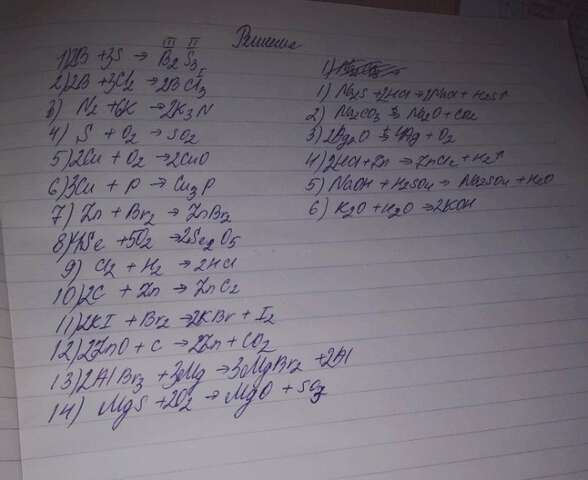 Решение
1) 2B + 3S → B₂S₃
III II
2) 2B + 3Cl₂ → 2BCl₃
I
3) N₂ + 6K → 2K₃N
4) S + O₂ → SO₂
5) 2Cu + O₂ → 2CuO
6) 3Cu + P → Cu₃P
7) Zn + Br₂ → ZnBr₂
8) 4Se + 5O₂ → 2Se₂O₅
9) Cl₂ + H₂ → 2HCl
10) 2C + Zn → ZnC₂
11) 2KI + Br₂ → 2KBr + I₂
12) 2ZnO + C → 2Zn + CO₂
13) 2AlBr₃ + 3Mg → 3MgBr₂ + 2Al
14) MgS + 2O₂ → MgO + SO₃
1) Na₂S + 2HCl → 2NaCl + H₂S↑
2) Na₂CO₃ → Na₂O + CO₂
3) 2Ag₂O → 4Ag + O₂
4) 2HCl + Zn → ZnCl₂ + H₂↑
5) NaOH + H₂SO₄ → Na₂SO₄ + H₂O
6) K₂O + H₂O → 2KOH